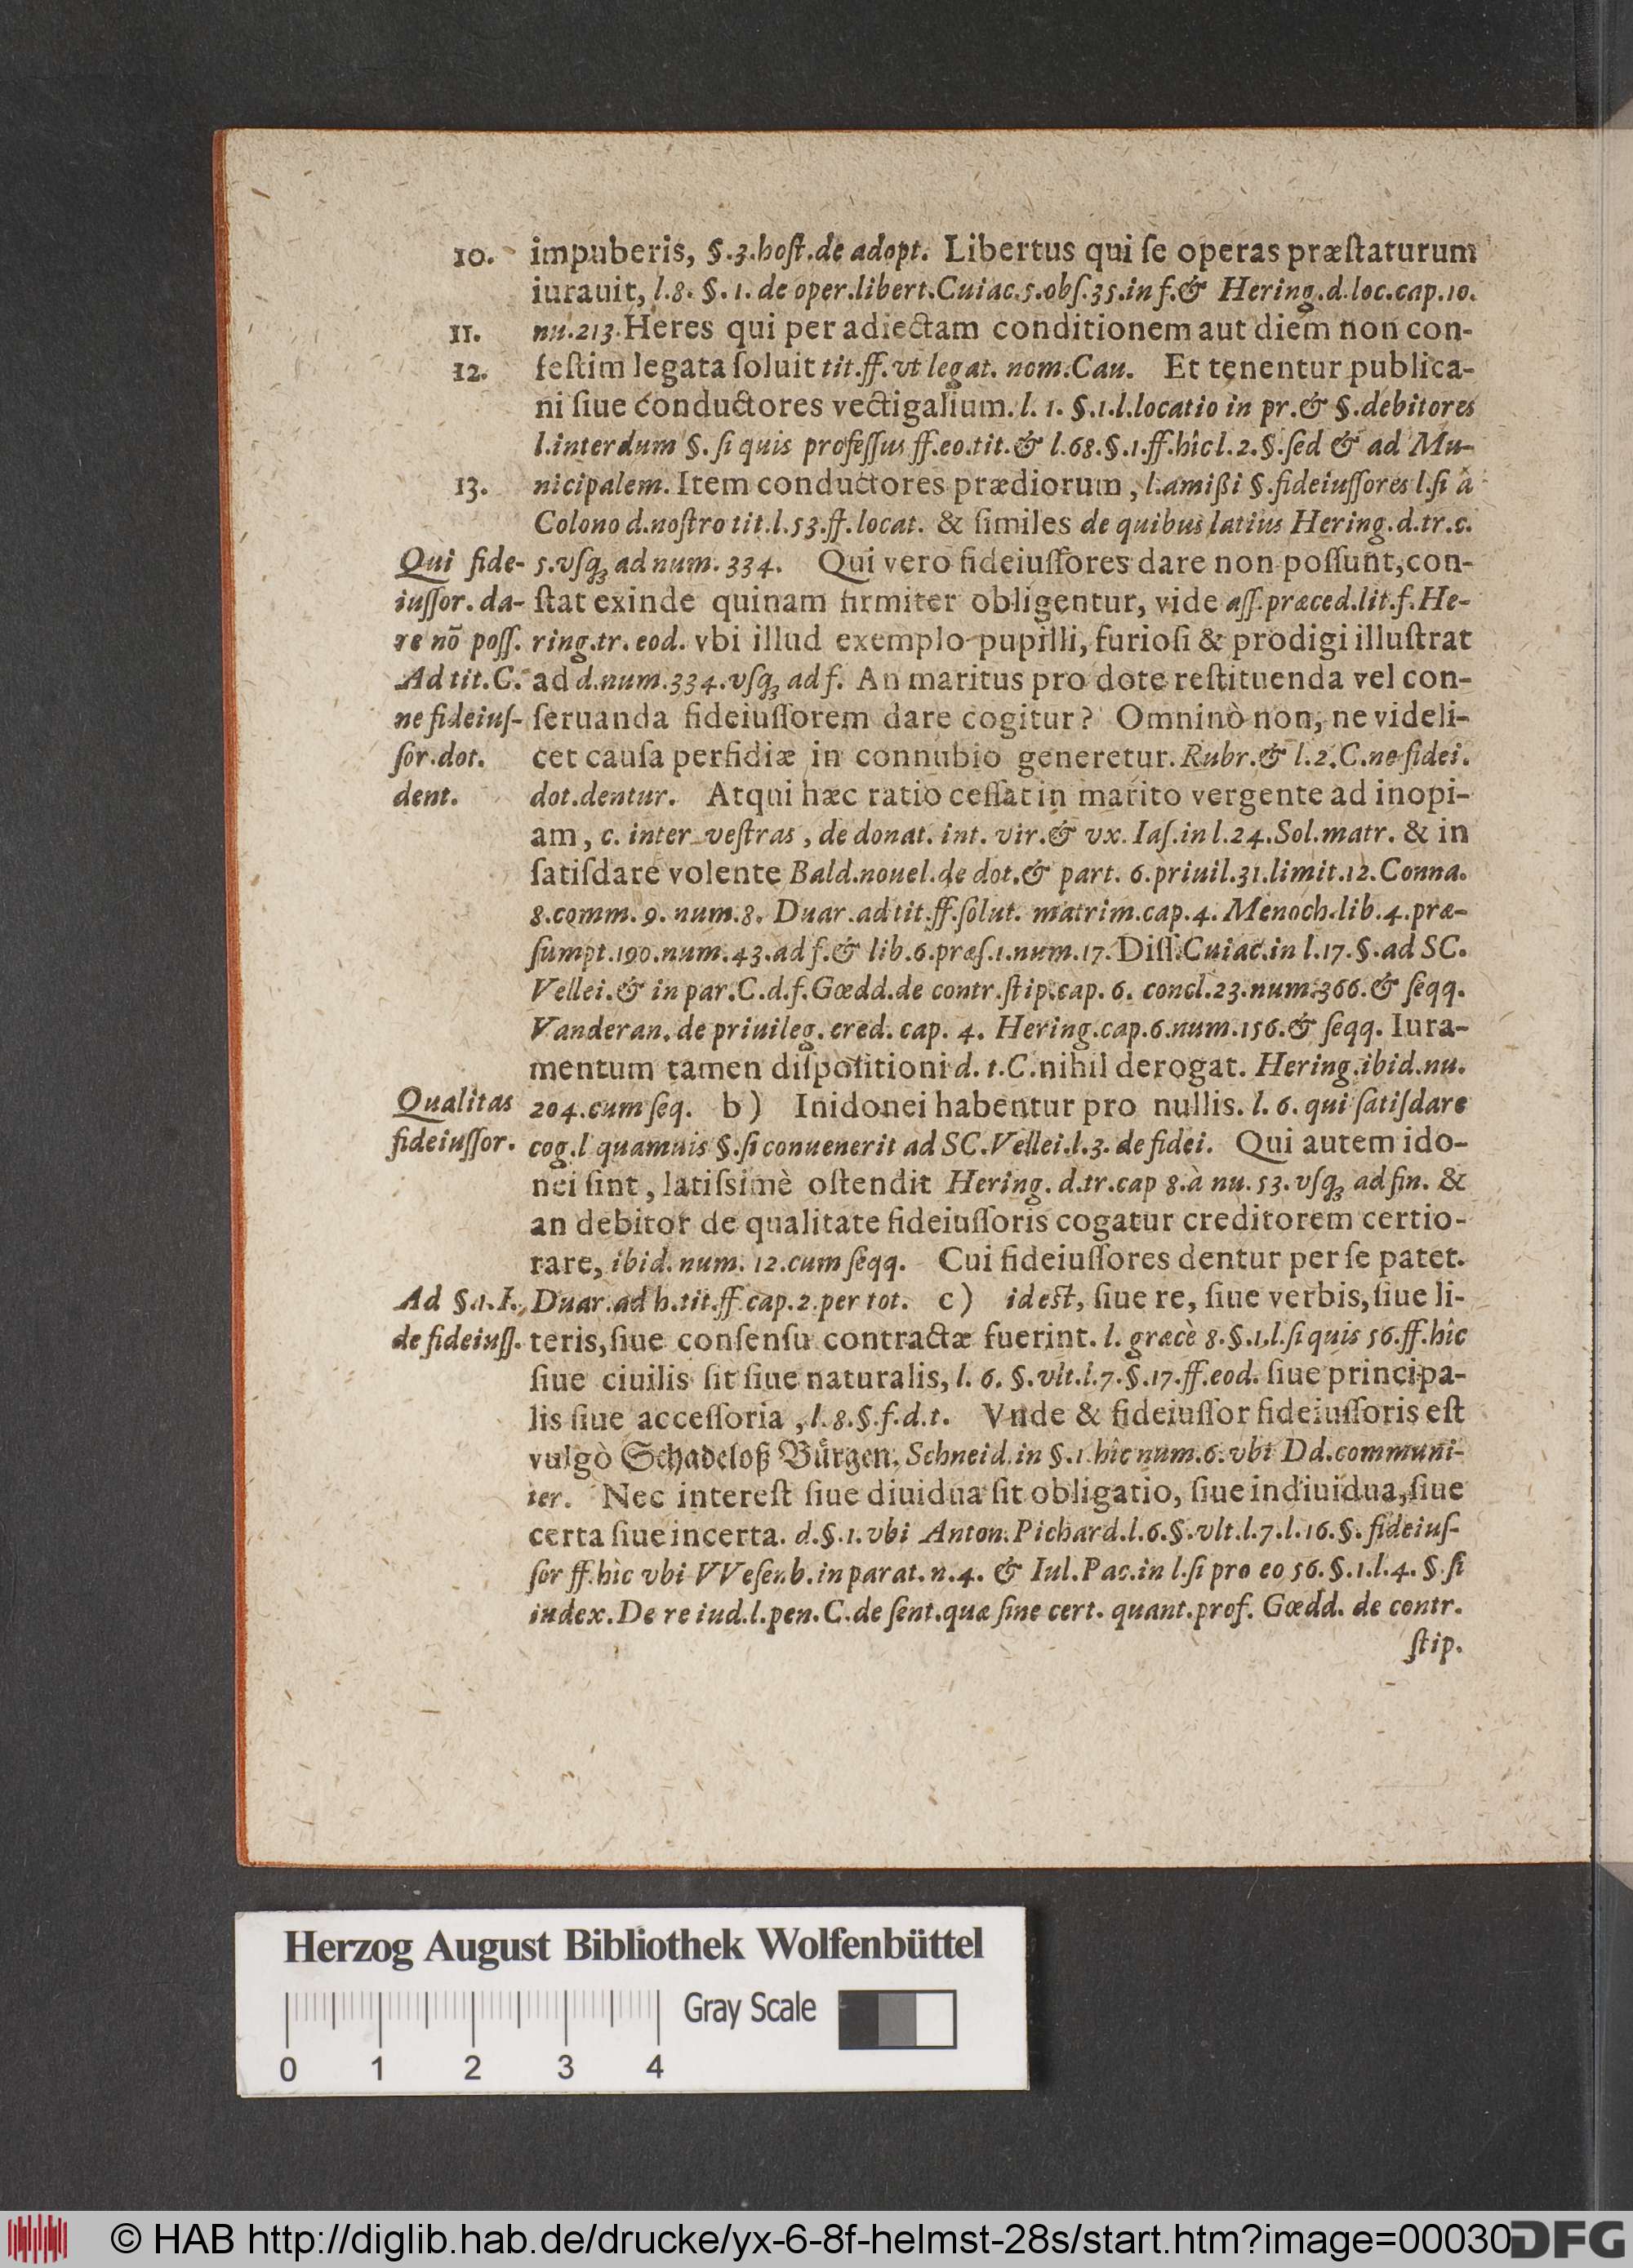 10. impuberis, §.3.hoſt.de adopt. Libertus qui ſe operas præſtaturum
iurauit, l.8. §. 1. de oper.libert.Cuiac.5.obſ.35.in f.& Hering.d.loc.cap.10.
11. nu.213. Heres qui per adiectam conditionem aut diem non con-
12. feſtim legata ſoluit tit.ff.vt legat. nom.Cau. Et tenentur publica-
ni ſiue conductores vectigalium. l. 1. §.1.l.locatio in pr.& §.debitores
l.interdum §. ſi quis profeſſus ff.eo.tit.& l.68.§.1.ff.hîc l.2.§.ſed & ad Mu-
13. nicipalem. Item conductores prædiorum, l.amißi §.fideiuſſores l.ſi â
Colono d.noſtro tit.l.53.ff.locat. & ſimiles de quibus latius Hering.d.tr.c.
Qui fide- 5.vſq; ad num. 334. Qui vero fideiuſſores dare non poſſunt, con-
iuſſor. da- ſtat exinde quinam firmiter obligentur, vide aſſ.præced.lit.f.He-
re nõ poſſ. ring.tr. eod. vbi illud exemplo pupilli, furioſi & prodigi illuſtrat
Ad tit.C. ad d.num.334.vſq; ad f. An maritus pro dote reſtituenda vel con-
ne fideiuſ- ſeruanda fideiuſſorem dare cogitur? Omninò non, ne videli-
ſor.dot. cet cauſa perfidiæ in connubio generetur. Rubr.& l.2.C.ne fidei.
dent. dot.dentur. Atqui hæc ratio ceſſat in marito vergente ad inopi-
am, c. inter veſtras, de donat. int. vir.& vx. Iaſ.in l.24.Sol.matr. & in
ſatiſdare volente Bald.nouel.de dot.& part. 6.priuil.31.limit.12.Conna.
8.comm. 9. num.8. Duar.ad tit.ff.ſolut. matrim.cap.4. Menoch.lib.4.præ-
ſumpt.190.num.43.ad f.& lib.6.præſ.1.num.17. Diſſ.Cuiac.in l.17.§.ad SC.
Vellei.& in par.C.d.f.Gœdd.de contr.ſtip.cap. 6. concl.23.num.366.& ſeqq.
Vanderan.de priuileg. cred. cap. 4. Hering.cap.6.num.156.& ſeqq. Iura-
mentum tamen diſpoſitioni d. t.C. nihil derogat. Hering.ibid.nu.
Qualitas 204.cum ſeq. b) Inidonei habentur pro nullis. l. 6. qui ſatiſdare
fideiuſſor. cog.l quamuis §.ſi conuenerit ad SC.Vellei.l.3. de fidei. Qui autem ido-
nei ſint, latiſsimè oſtendit Hering. d.tr.cap 8.à nu. 53. vſq; ad fin. &
an debitor de qualitate fideiuſſoris cogatur creditorem certio-
rare, ibid. num. 12.cum ſeqq. Cui fideiuſſores dentur per ſe patet.
Ad §.1.I. Duar.ad h.tit.ff.cap.2.per tot. c) id eſt, ſiue re, ſiue verbis, ſiue li-
de fideiuſſ. teris, ſiue conſenſu contractæ fuerint. l. græcè 8.§.1.l.ſi quis 56.ff.hîc
ſiue ciuilis ſit ſiue naturalis, l. 6. §.vlt.l.7.§.17.ff.eod. ſiue principa-
lis ſiue acceſſoria, l.8.§.f.d.t. Vnde & fideiuſſor fideiuſſoris eſt
vulgò Schadeloß Bürgen, Schneid.in §.1.hîc num.6.vbi Dd.communi-
ter. Nec intereſt ſiue diuidua ſit obligatio, ſiue indiuidua, ſiue
certa ſiue incerta. d.§.1. vbi Anton.Pichard.l.6.§.vlt.l.7.l.16.§. fideiuſ-
ſor ff.hîc vbi VVeſenb.in parat. n.4. & Iul.Pac.in l.ſi pro eo 56.§.1.l.4. §.ſi
iudex. De re iud.l.pen.C.de ſent.quæ ſine cert. quant.prof. Gœdd. de contr.
ſtip.
Herzog August Bibliothek Wolfenbüttel
Gray Scale
0 1 2 3 4
© HAB http://diglib.hab.de/drucke/yx-6-8f-helmst-28s/start.htm?image=00030
DFG